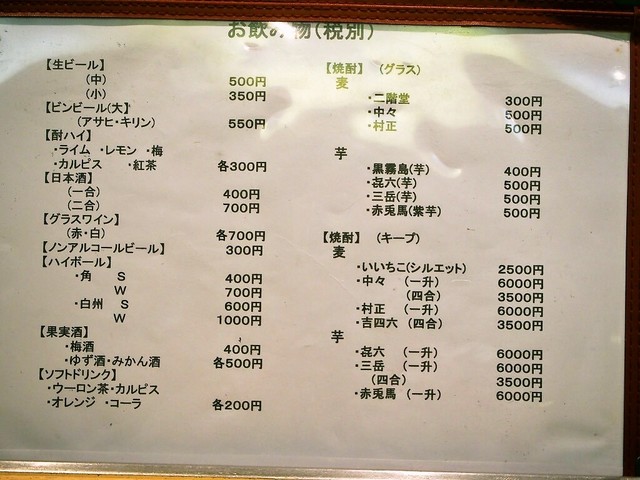 お飲み物(税別)
【生ビール】
(中) 500円
(小) 350円
【ビンビール(大)】
(アサヒ・キリン) 550円
【酎ハイ】
・ライム ・レモン ・梅
・カルピス ・紅茶 各300円
【日本酒】
(一合) 400円
(二合) 700円
【グラスワイン】
(赤・白) 各700円
【ノンアルコールビール】 300円
【ハイボール】
・角 S 400円
W 700円
・白州 S 600円
W 1000円
【果実酒】
・梅酒 400円
・ゆず酒・みかん酒 各500円
【ソフトドリンク】
・ウーロン茶・カルピス
・オレンジ ・コーラ 各200円
【焼酎】 (グラス)
麦
・二階堂 300円
・中々 500円
・村正 500円
芋
・黒霧島(芋) 400円
・㐂六(芋) 500円
・三岳(芋) 500円
・赤兎馬(紫芋) 500円
【焼酎】 (キープ)
麦
・いいちこ(シルエット) 2500円
・中々 (一升) 6000円
(四合) 3500円
・村正 (一升) 6000円
・吉四六 (四合) 3500円
芋
・㐂六 (一升) 6000円
・三岳 (一升) 6000円
(四合) 3500円
・赤兎馬 (一升) 6000円